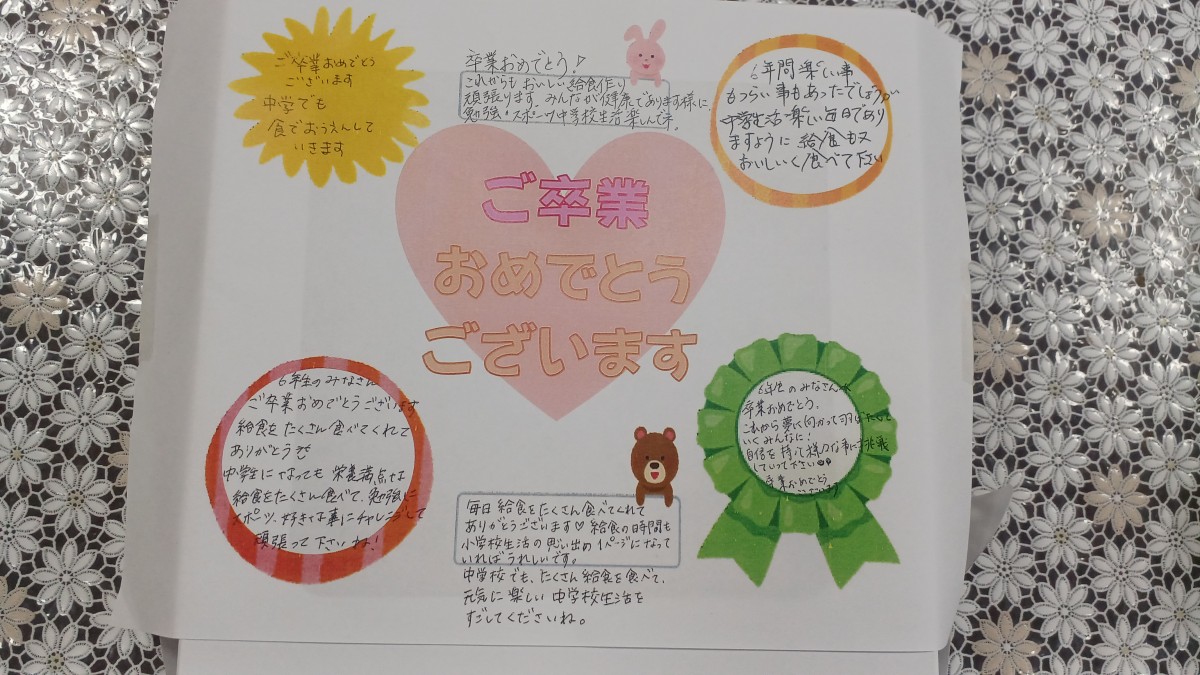 ご卒業おめでとう
ございます
中学でも
食でおうえんして
いきます
卒業おめでとう♪
これからもおいしい給食作り
頑張ります。みんなが健康であります様に。
勉強・スポーツ中学校生活楽しんで
6年間楽しい事
もつらい事もあったでしょうが
中学生活楽しい毎日であり
ますように 給食も又
おいしく食べて下さい
ご卒業
おめでとう
ございます
6年生のみなさん
ご卒業おめでとうございます
給食をたくさん食べてくれて
ありがとう
中学生になっても 栄養満点な
給食をたくさん食べて、勉強に
スポーツ、好きな事にチャレンジして
頑張って下さいね!
毎日給食をたくさん食べてくれて
ありがとうございます♡ 給食の時間も
小学校生活の思い出の1ページになって
いればうれしいです。
中学校でも、たくさん給食を食べて、
元気に楽しい中学校生活を
すごしてくださいね。
6年生のみなさんへ
卒業おめでとう。
これから夢に向かって羽ばたいて
いくみんなに!
自信を持って様々な事に挑戦
していって下さい
卒業おめでとう
ございます